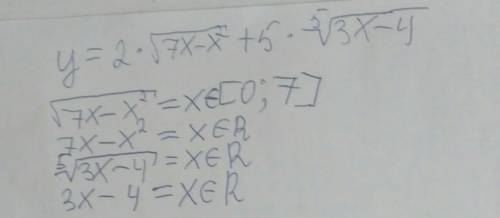 y = 2 · √(7x-x²) + 5 · ⁵√(3x-4)
√(7x-x²) = x∈[0; 7]
7x-x² = x∈R
⁵√(3x-4) = x∈R
3x-4 = x∈R